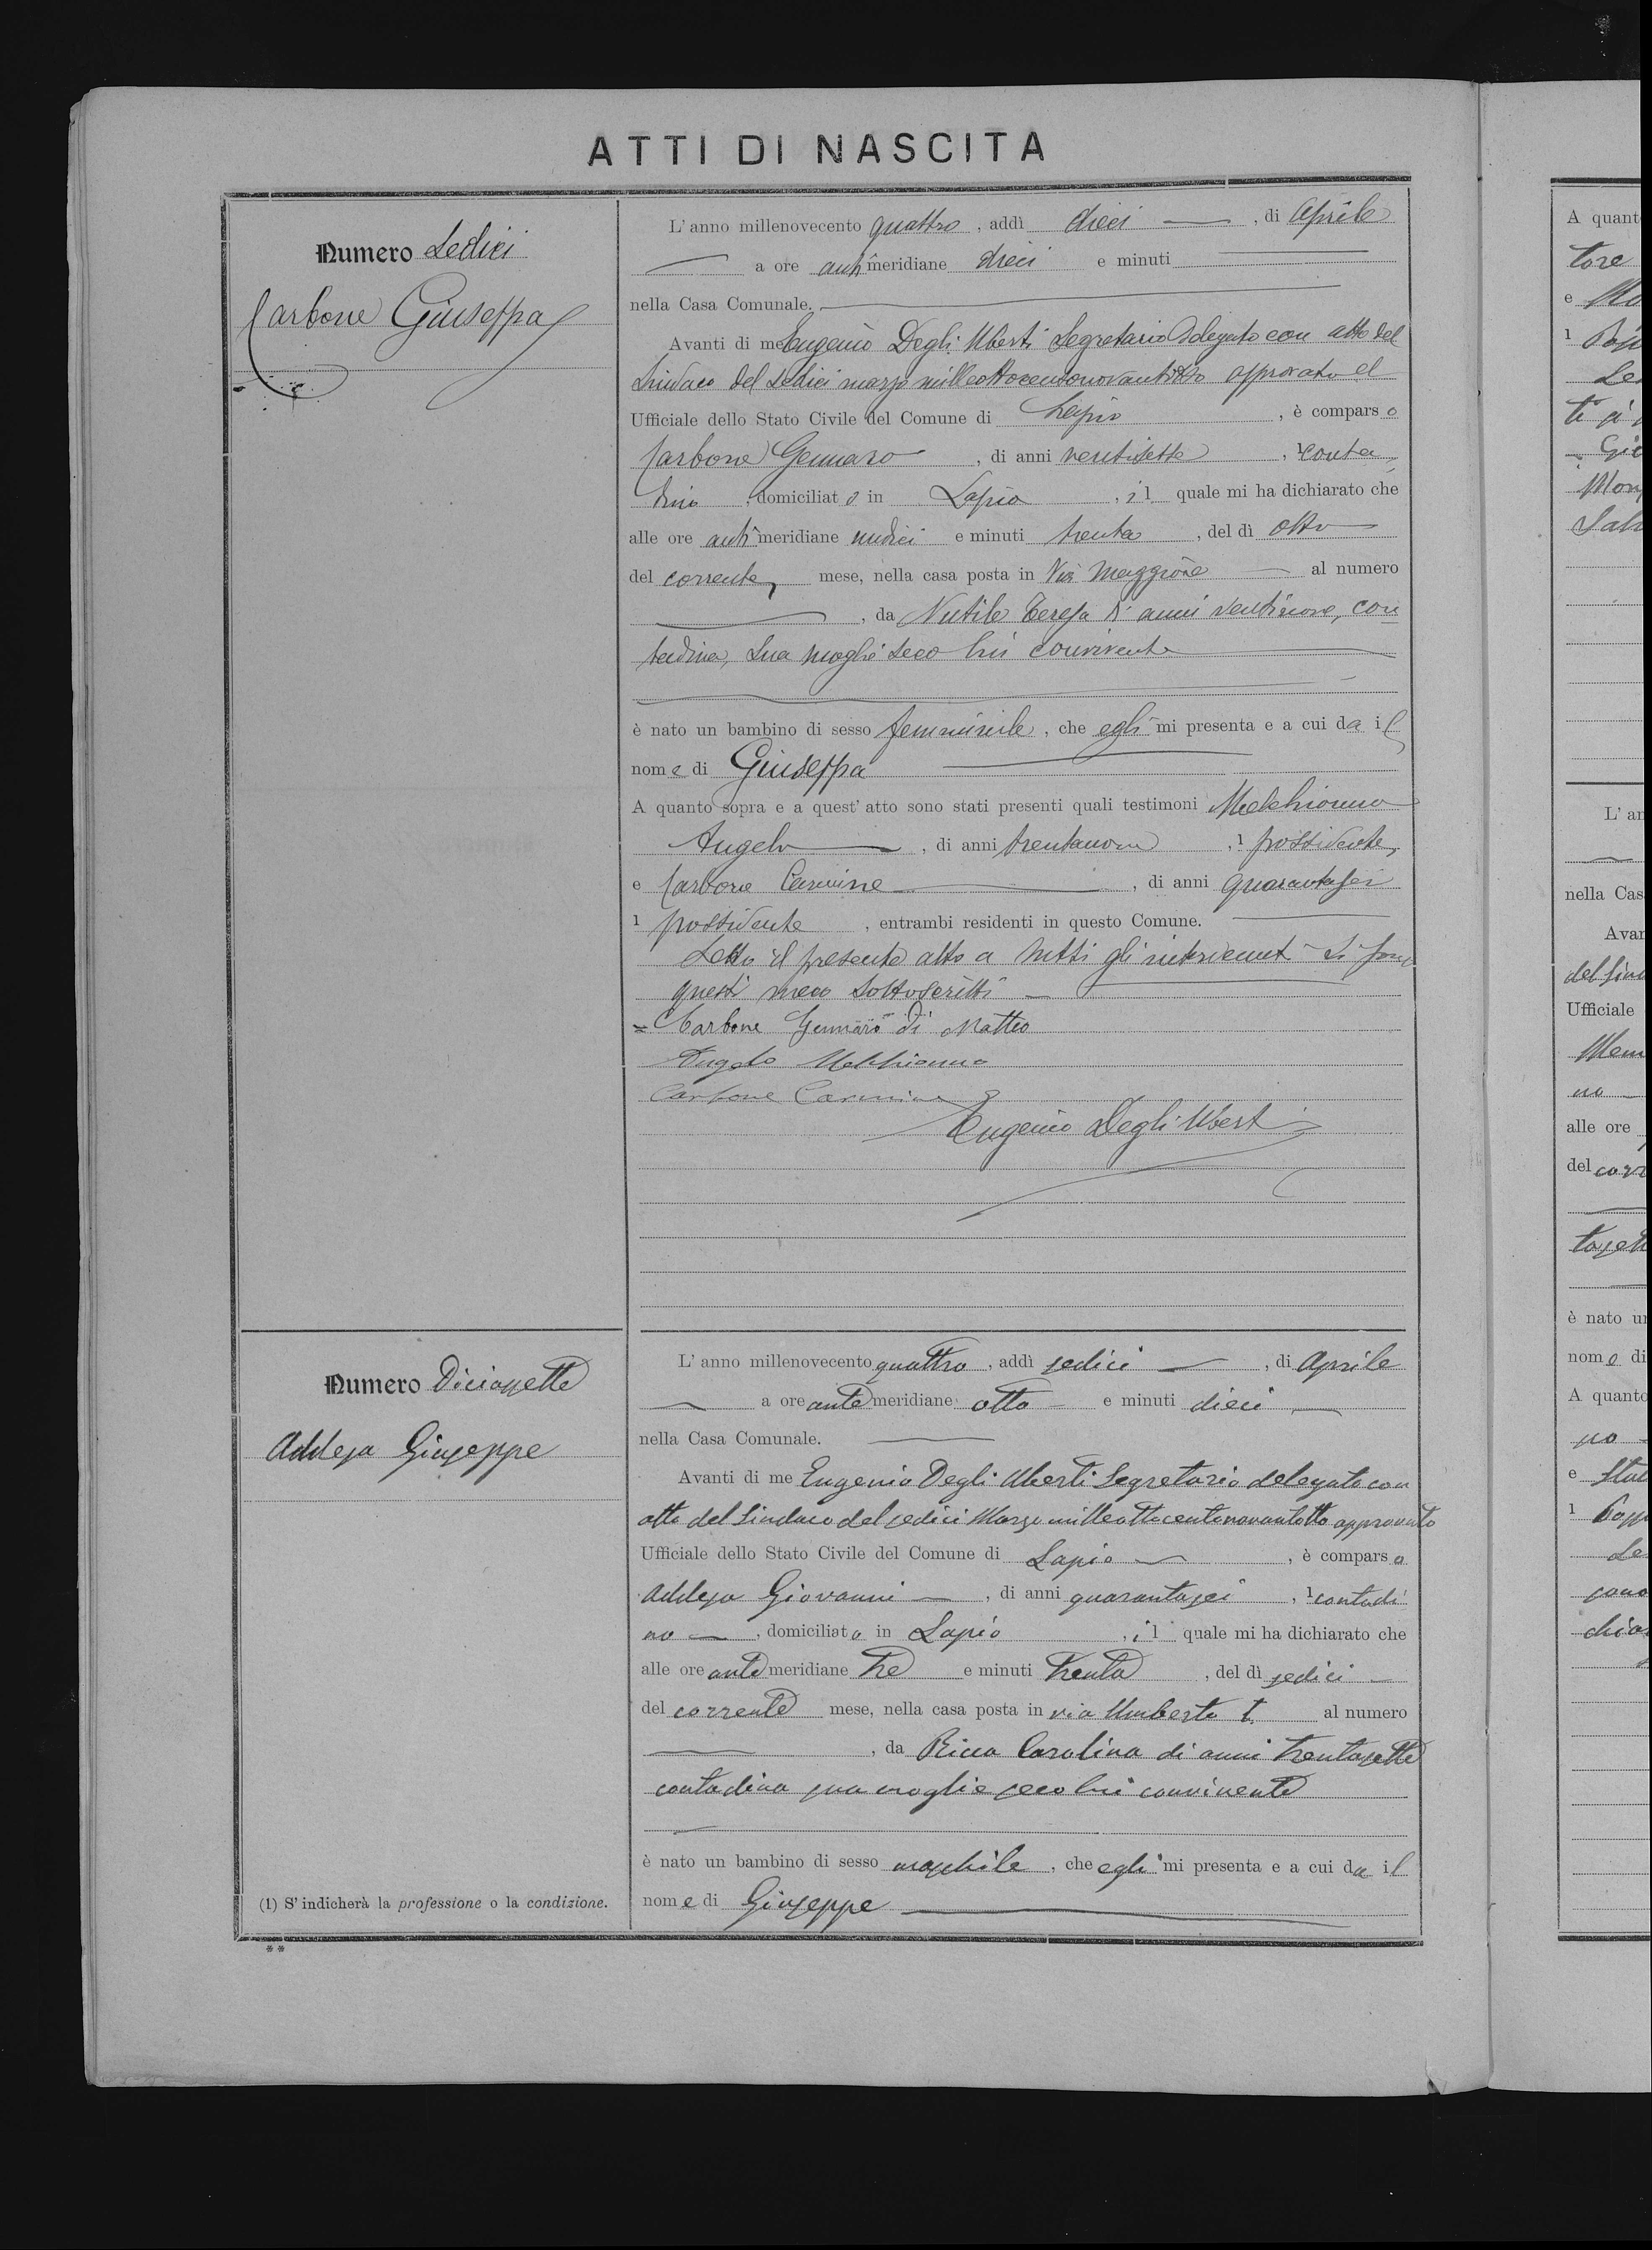 ATTI DI NASCITA
Numero Sedici
Carbone Giuseppa
L'anno millenovecento quattro, addì dieci, di Aprile
a ore anti meridiane dieci e minuti
nella Casa Comunale.
Avanti di me Eugenio Degli Uberti Segretario Delegato con atto del
Sindaco del sedici marzo milleottocentonovantotto approvato el
Ufficiale dello Stato Civile del Comune di Lapio, è comparso
Carbone Gennaro, di anni ventisette, 1 conta
dino, domiciliato in Lapio, il quale mi ha dichiarato che
alle ore anti meridiane undici e minuti trenta, del dì otto
del corrente mese, nella casa posta in Via Maggiore al numero
, da Nutile Teresa di anni ventinove, con
tadina, sua moglie seco lui convivente
è nato un bambino di sesso femminile, che egli mi presenta e a cui da il
nome di Giuseppa
A quanto sopra e a quest'atto sono stati presenti quali testimoni Melchionna
Angelo, di anni trentanove, 1 possidente,
e Carbone Carmine, di anni quarantasei
1 possidente, entrambi residenti in questo Comune.
Letto il presente atto a tutti gli intervenuti si sono
questi meco sottoscritti
= Carbone Gennaro di Matteo
Angelo Melchionna
Carbone Carmine
Eugenio Degli Uberti
Numero Diciassette
Addesa Giuseppe
L'anno millenovecento quattro, addì sedici, di Aprile
a ore ante meridiane otto e minuti dieci
nella Casa Comunale.
Avanti di me Eugenio Degli Uberti Segretario delegato con
atto del Sindaco del sedici Marzo milleottocentonovantotto approvato
Ufficiale dello Stato Civile del Comune di Lapio, è comparso
Addesa Giovanni, di anni quarantasei, 1 contadi
no, domiciliato in Lapio, il quale mi ha dichiarato che
alle ore ante meridiane tre e minuti trenta, del dì sedici
del corrente mese, nella casa posta in via Umberto I. al numero
, da Ricca Carolina di anni trentasette
contadina sua moglie seco lui convivente
è nato un bambino di sesso maschile, che egli mi presenta e a cui da il
nome di Giuseppe
(1) S'indicherà la professione o la condizione.
**
A quant
tore
e
1
ti
L'an
nella Cas
Avan
del Sind
Ufficiale
no
alle ore
del corr
è nato un
nome di
A quanto
no
e
1